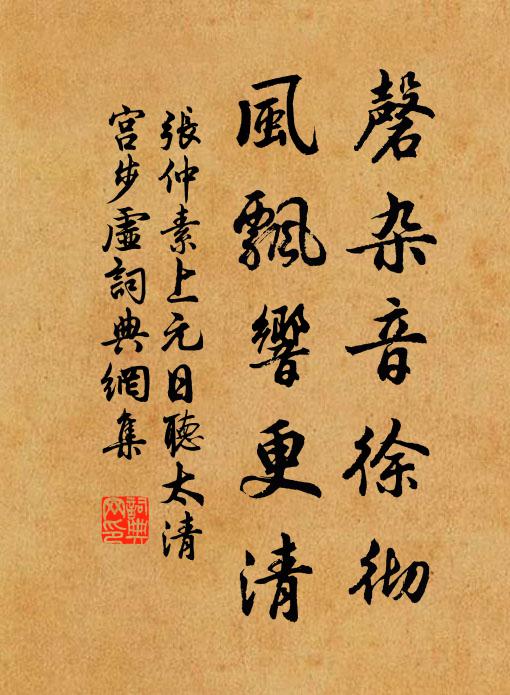 磬杂音徐彻
風飄響更清
張仲素上元日聽太清
宫步虛詞典網集
詞典网印